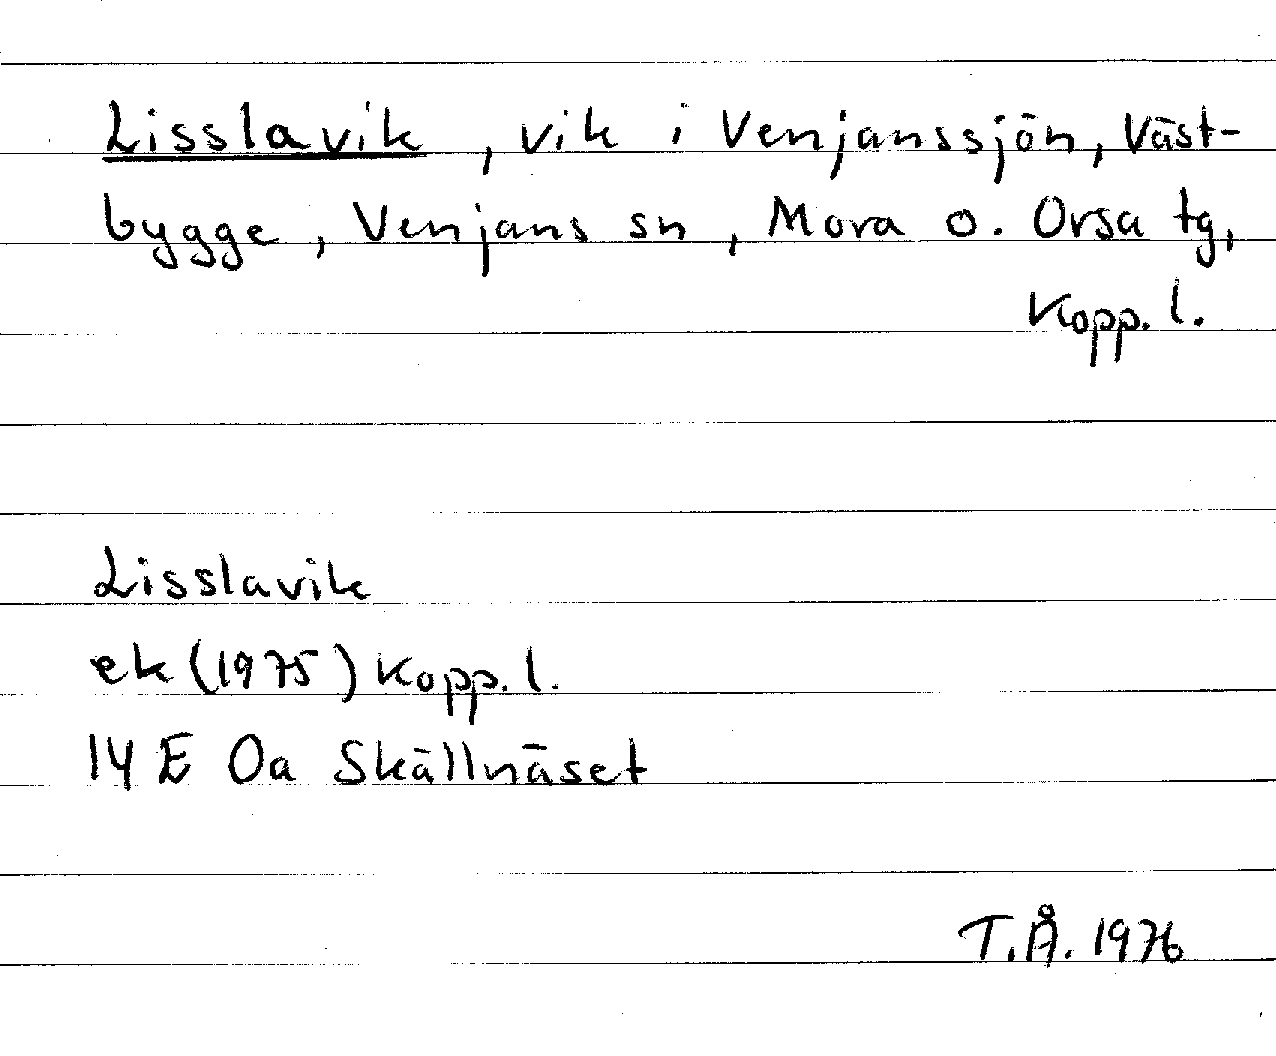 Lisslavik, vik i Venjanssjön, Väst-
bygge, Venjans sn, Mora o. Orsa tg,
Kopp. l.
Lisslavik
ek (1975) Kopp. l.
14 E 0a Skällnäset
T.Å. 1976